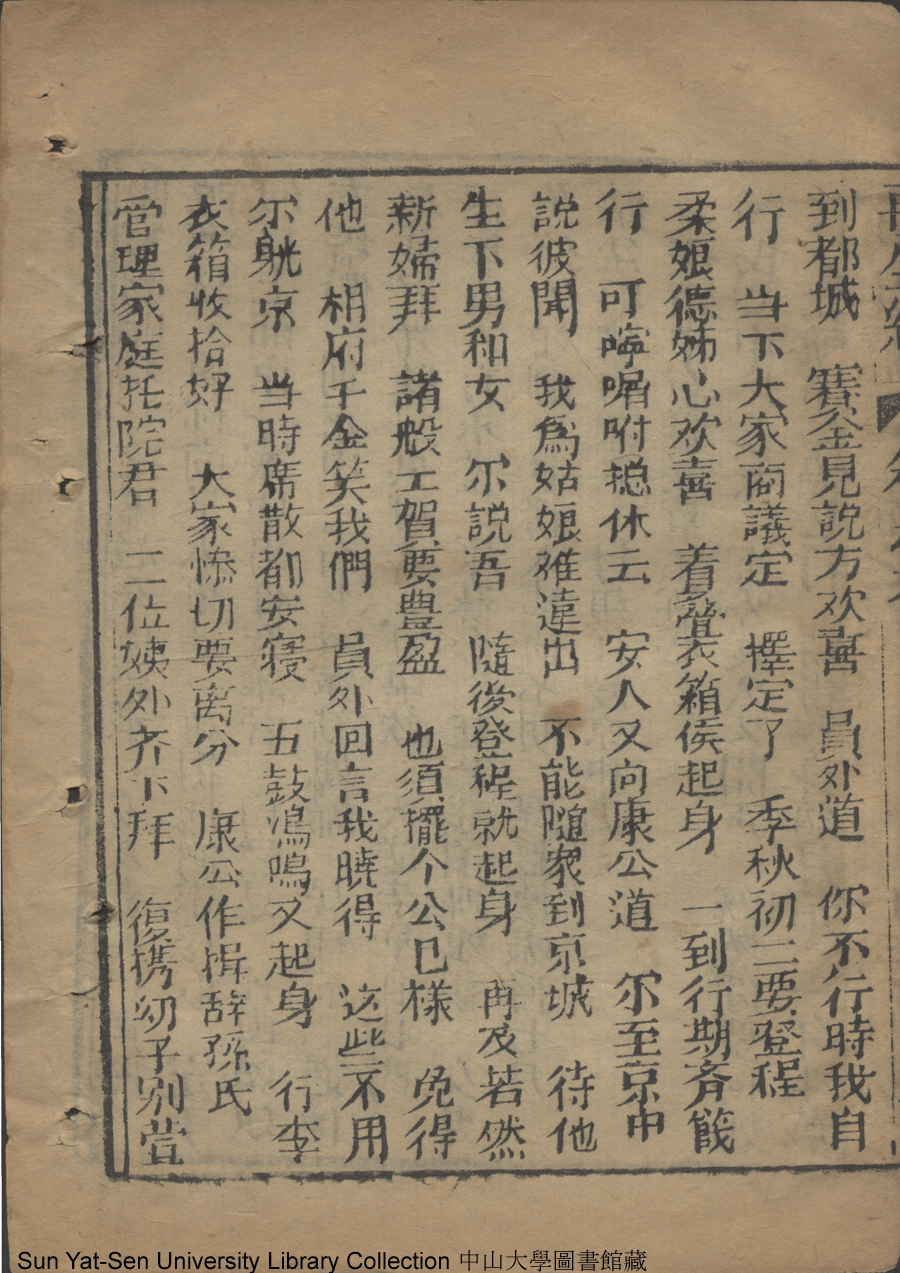 再生緣
到都城　賽金見說方欢喜　員外道　你不行時我自
行　当下大家商議定　擇定了　季秋初二要登程
柔娘德姊心欢喜　着叠衣箱侯起身　一到行期斉餞
行　可嚀嘱咐搃休云　安人又向康公道　尔至京中
說彼聞　我爲姑娘难違出　不能隨家到京城　待他
生下男和女　尔說吾　隨後登程就起身　再及若然
新婦拜　諸般工賀要豊盈　也須擺个公巳樣　免得
他　相府千金笑我們　員外回言我曉得　这些不用
尔躭京　当時席散都安寝　五鼓鳴鳴又起身　行李
衣箱收拾好　大家惨切要离分　康公作揖辞孫氏
管理家庭托院君　二位姨外齐下拜　復携幼子别萱
Sun Yat-Sen University Library Collection 中山大學圖書館藏